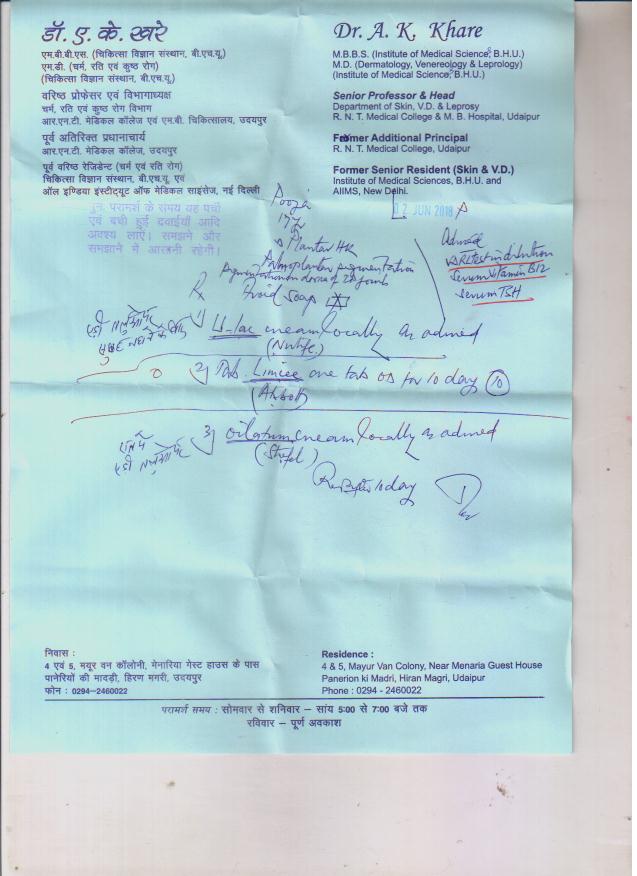 डॉ. ए. के. खरे
एम.बी.बी.एस. (चिकित्सा विज्ञान संस्थान, बी.एच.यू.)
एम.डी. (चर्म, रति एवं कुष्ठ रोग)
(चिकित्सा विज्ञान संस्थान, बी.एच.यू.)
वरिष्ठ प्रोफेसर एवं विभागाध्यक्ष
चर्म, रति एवं कुष्ठ रोग विभाग
आर.एन.टी. मेडिकल कॉलेज एवं एम.बी. चिकित्सालय, उदयपुर
पूर्व अतिरिक्त प्रधानाचार्य
आर.एन.टी. मेडिकल कॉलेज, उदयपुर
पूर्व वरिष्ठ रेजिडेन्ट (चर्म एवं रति रोग)
चिकित्सा विज्ञान संस्थान, बी.एच.यू. एवं
ऑल इण्डिया इंस्टीट्यूट ऑफ मेडिकल साइंसेज, नई दिल्ली
Dr. A. K. Khare
M.B.B.S. (Institute of Medical Science, B.H.U.)
M.D. (Dermatology, Venereology & Leprology)
(Institute of Medical Science, B.H.U.)
Senior Professor & Head
Department of Skin, V.D. & Leprosy
R. N. T. Medical College & M. B. Hospital, Udaipur
Former Additional Principal
R. N. T. Medical College, Udaipur
Former Senior Resident (Skin & V.D.)
Institute of Medical Sciences, B.H.U. and
AIIMS, New Delhi.
पुनः परामर्श के समय यह पर्चा
एवं बची हुई दवाईयाँ आदि
अवश्य लाएं। समझने और
समझाने में आसानी रहेगी।
02 JUN 2018
Pooja
Plantar HK
Palmoplantar pigmentation
Pigmentation
Advised
Serum Vitamin B12
Serum TSH
Rx Avoid soap
1) U-lac cream locally as advised
2) Tab. Limcee one tab OD for 10 day 10
(Abbott)
3) oilatum cream locally as advised
(Stiefel)
10 day
निवास :
4 एवं 5, मयूर वन कॉलोनी, मेनारिया गेस्ट हाउस के पास
पानेरियों की मादड़ी, हिरण मगरी, उदयपुर
फोन : 0294-2460022
Residence :
4 & 5, Mayur Van Colony, Near Menaria Guest House
Panerion ki Madri, Hiran Magri, Udaipur
Phone : 0294 - 2460022
परामर्श समय : सोमवार से शनिवार – सांय 5:00 से 7:00 बजे तक
रविवार – पूर्ण अवकाश